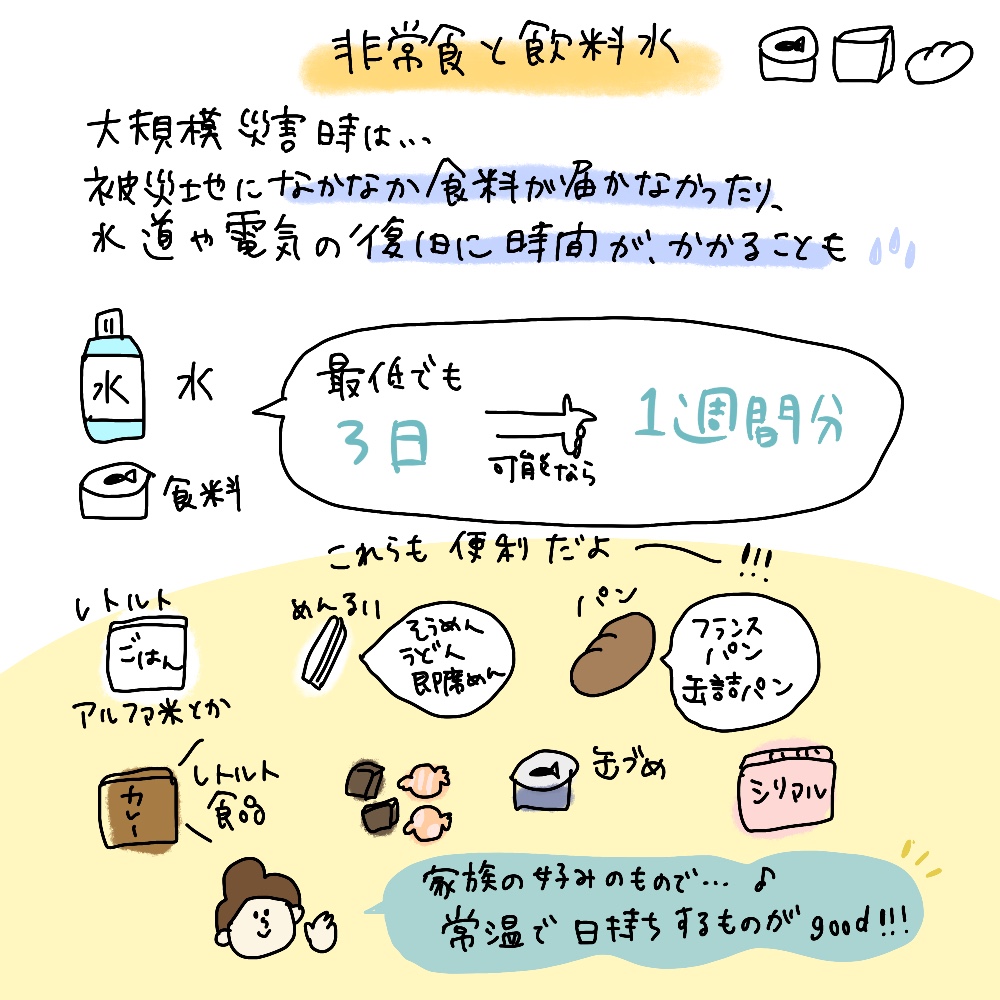 非常食と飲料水
大規模災害時は...
被災地になかなか食料が届かなかったり、
水道や電気の復旧に時間が、かかることも
水
水
食料
最低でも
3日
可能なら
1週間分
これらも便利だよ
!!!
レトルト
ごはん
アルファ米とか
めんるい
そうめん
うどん
即席めん
パン
フランス
パン
缶詰パン
カレー
レトルト
食品
缶づめ
シリアル
家族の好みのもので...♪
常温で日持ちするものがgood!!!